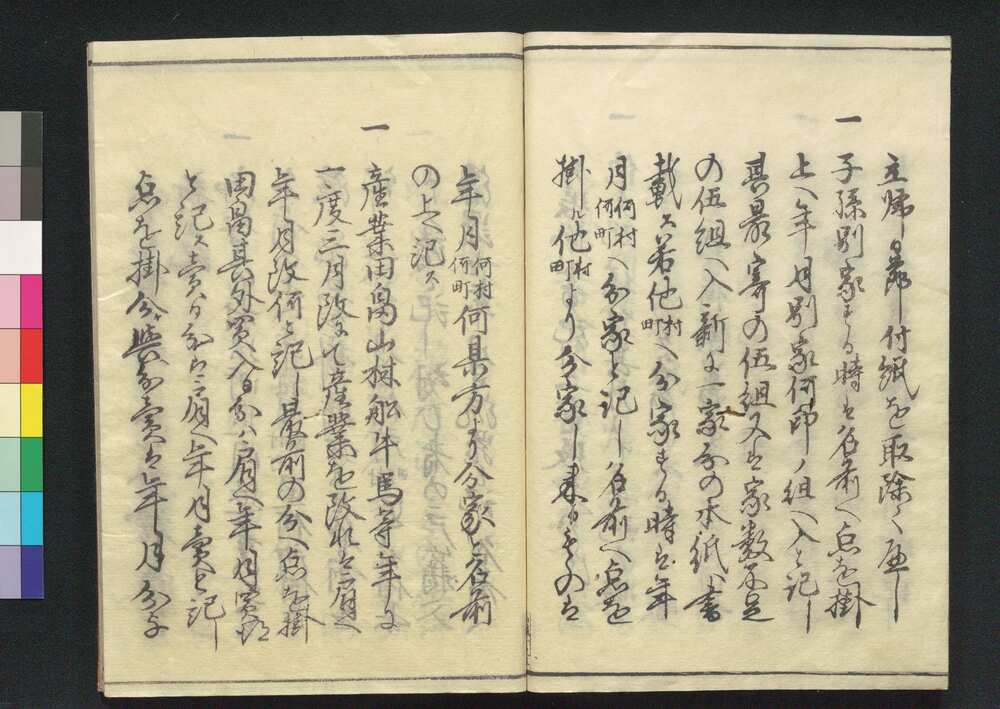 立帰り節ハ付紙を取除くへし
一
子孫別家する時は名前へ点を掛
上へ年月別家何印ノ組へ入と記し
其最寄の伍組又は家数不足
の伍組へ入新に一家分の水紙へ書
載ス若他村町へ分家する時は年
月何村何町へ分家と記し名前へ点を
掛ル他村町より分家し来ものは
年月何村何町何某方より分家と名前
の上へ記ス
一
産業田畠山林船牛馬等年に
一度三月改にて産業を改れは肩へ
年月改何と記し最前の分へ点を掛
田畠其外買入の分ハ肩へ年月買
と記ス売る分は肩へ年月売と記し
点を掛分与分売は年月分与